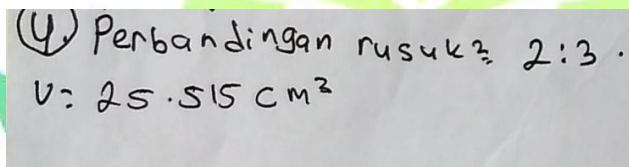 (4.) Perbandingan rusuk² 2:3.
V= 25.515 cm³